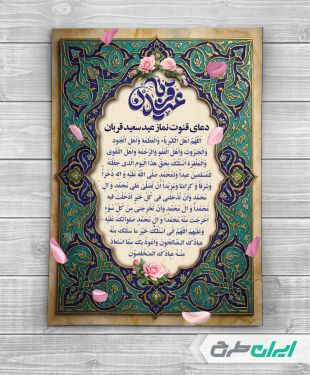 عید قربان
دعای قنوت نماز عید سعید قربان
اَللّهُمَّ اَهْلَ الْکِبْرِیاءِ وَالْعَظَمَةِ وَاَهْلَ الْجُودِ
وَالْجَبَرُوتِ وَاَهْلَ الْعَفْوِ وَالرَّحْمَةِ وَاَهْلَ التَّقْوی
وَالْمَغْفِرَةِ اَسْئَلُکَ بِحَقِّ هذَا الْیَومِ الَّذی جَعَلْتَهُ
لِلْمُسْلِمینَ عیداً وَلِمُحَمَّدٍ صَلَّی اللهُ عَلَیْهِ وَآلِهِ ذُخْراً
وَشَرَفاً وَ کَرامَةً وَمَزیْداً اَنْ تُصَلِّیَ عَلی مُحَمَّدٍ وَ آلِ
مُحَمَّدٍ وَاَنْ تُدْخِلَنی فی کُلِّ خَیْرٍ اَدْخَلْتَ فیهِ
مُحَمَّداً وَ آلَ مُحَمَّدٍ وَاَنْ تُخْرِجَنی مِنْ کُلِّ سُوءٍ
اَخْرَجْتَ مِنْهُ مُحَمَّداً وَ آلَ مُحَمَّدٍ صَلَواتُکَ عَلَیْهِ
وَعَلَیْهِمْ اَللّهُمَّ اِنّی اَسْئَلُکَ خَیْرَ ما سَئَلَکَ مِنْهُ
عِبادُکَ الصّالِحُونَ وَاَعُوذُ بِکَ مِمَّا اسْتَعاذَ
مِنْهُ عِبادُکَ الْمُخْلَصُونَ
ایران طرح